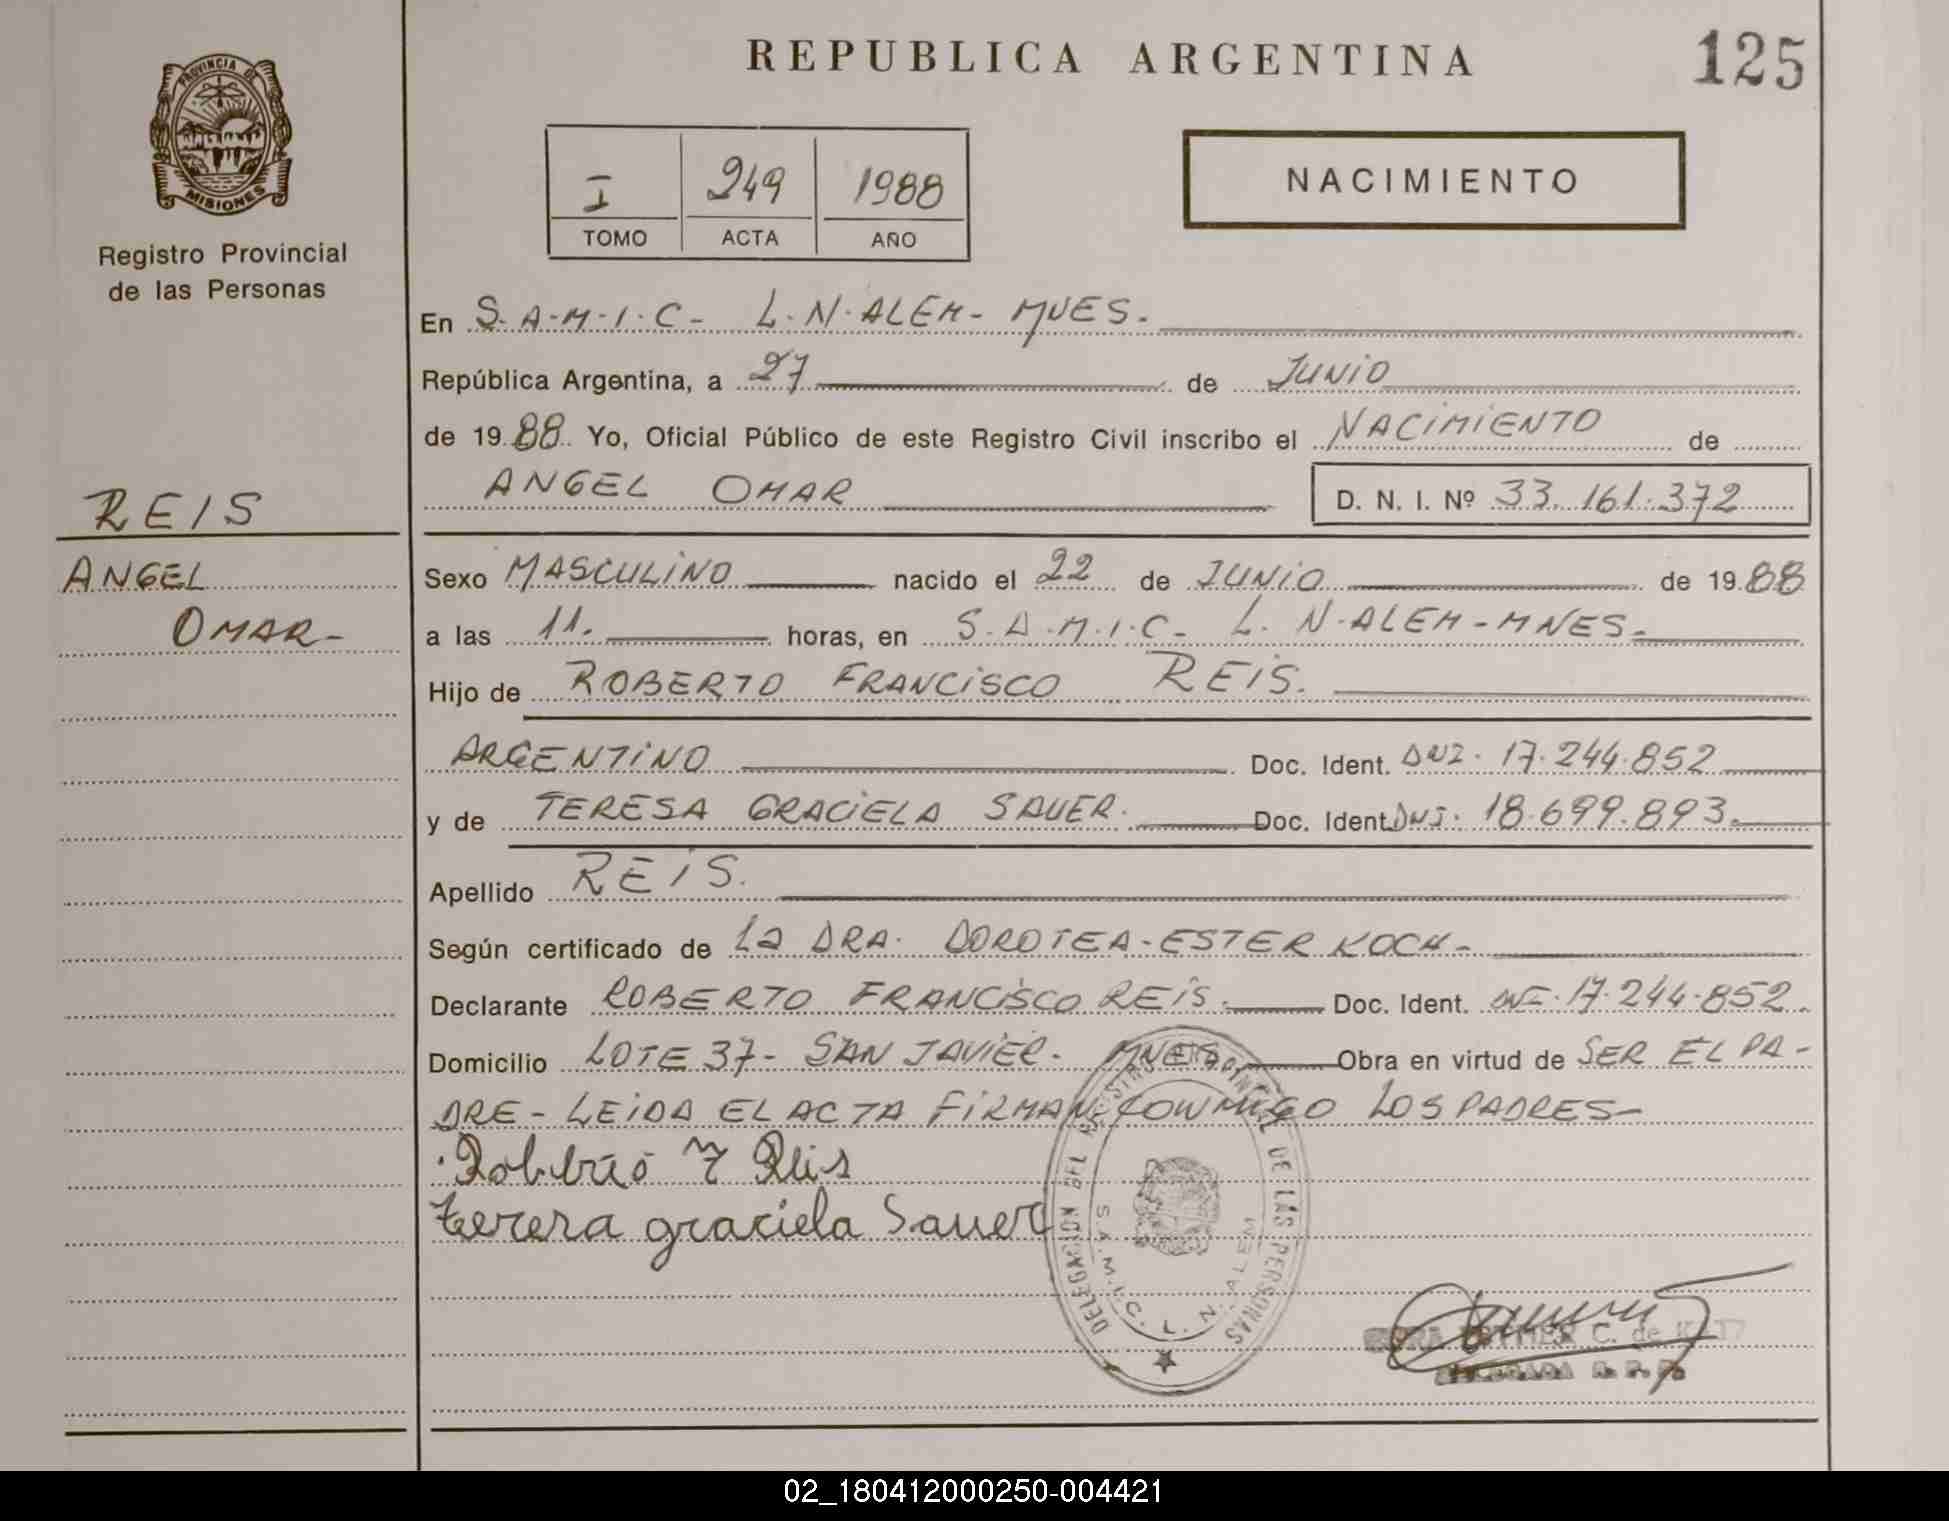 REPUBLICA ARGENTINA
125
PROVINCIA DE
MISIONES
Registro Provincial
de las Personas
I 249 1988
TOMO ACTA AÑO
NACIMIENTO
En S.A.M.I.C- L.N.ALEM- MNES.
República Argentina, a 27 de JUNIO
de 1988 Yo, Oficial Público de este Registro Civil inscribo el NACIMIENTO de
ANGEL OMAR D. N. I. Nº 33.161.372
REIS
ANGEL
OMAR-
Sexo MASCULINO nacido el 22 de JUNIO de 1988
a las 11. horas, en S.A.M.I.C- L.N.ALEM-MNES-
Hijo de ROBERTO FRANCISCO REIS.
ARGENTINO Doc. Ident. DNI. 17.244.852
y de TERESA GRACIELA SAUER. Doc. Ident. DNI. 18.699.893.
Apellido REIS.
Según certificado de La DRA. DOROTEA-ESTER KOCH-
Declarante ROBERTO FRANCISCO REIS. Doc. Ident. DNI. 17.244.852.
Domicilio LOTE 37- SAN JAVIER. MNES Obra en virtud de SER EL PA-
DRE- LEIDA EL ACTA FIRMAN CONMIGO LOS PADRES-
Roberto F Reis
terera graciela Sauer
DELEGACION DEL REGISTRO PROVINCIAL DE LAS PERSONAS
S.A.M.I.C. L. N. ALEM
C. de
02_180412000250-004421